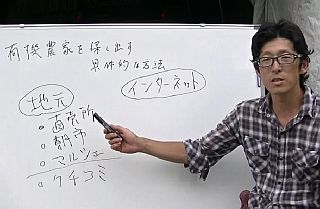 有機農家を探し出す
具体的な方法
インターネット
地元
・直売所
・朝市
・マルシェ
・クチコミ